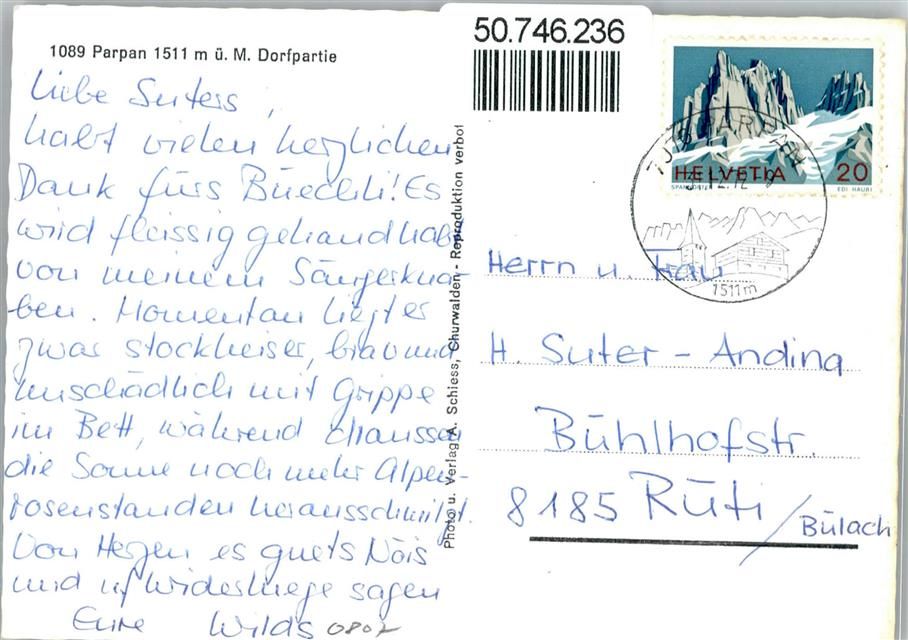 1089 Parpan 1511 m ü. M. Dorfpartie
50.746.236
Liebe Suters,
habt vielen herzlichen
Dank fürs Büechli! Es
wird fleissig gehandhabt
von meinem Sängerkna-
ben. Momentan liegt er
zwar stockheiser, brav und
unschädlich mit Grippe
im Bett, während draussen
die Sonne noch mehr Alpen-
rosenstanden herausschmilzt.
Von Herzen es guets Nöis
und uf Widerluege sagen
Eure Wilds
0802
Photo u. Verlag A. Schiess, Churwalden - Reproduktion verbot
HELVETIA 20
SPANNÖRTER EDI HAURI
PARPAN
1511 m
Herrn u. Frau
H. Suter - Andina
Bühlhofstr.
8185 Rüti / Bülach